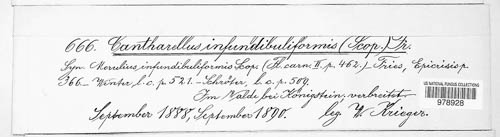 666. Cantharellus infundibuliformis (Scop.) Fr.
Syn. Merulius infundibuliformis Scop. (Fl. carn. II p. 462.) Fries, Epicrisis p.
366. – Winter, l. c. p. 521. – Schröter, l. c. p. 509.
Im Walde bei Königstein, verbreitet.
September 1888, September 1890. leg. W. Krieger.
US NATIONAL FUNGUS COLLECTIONS
978928